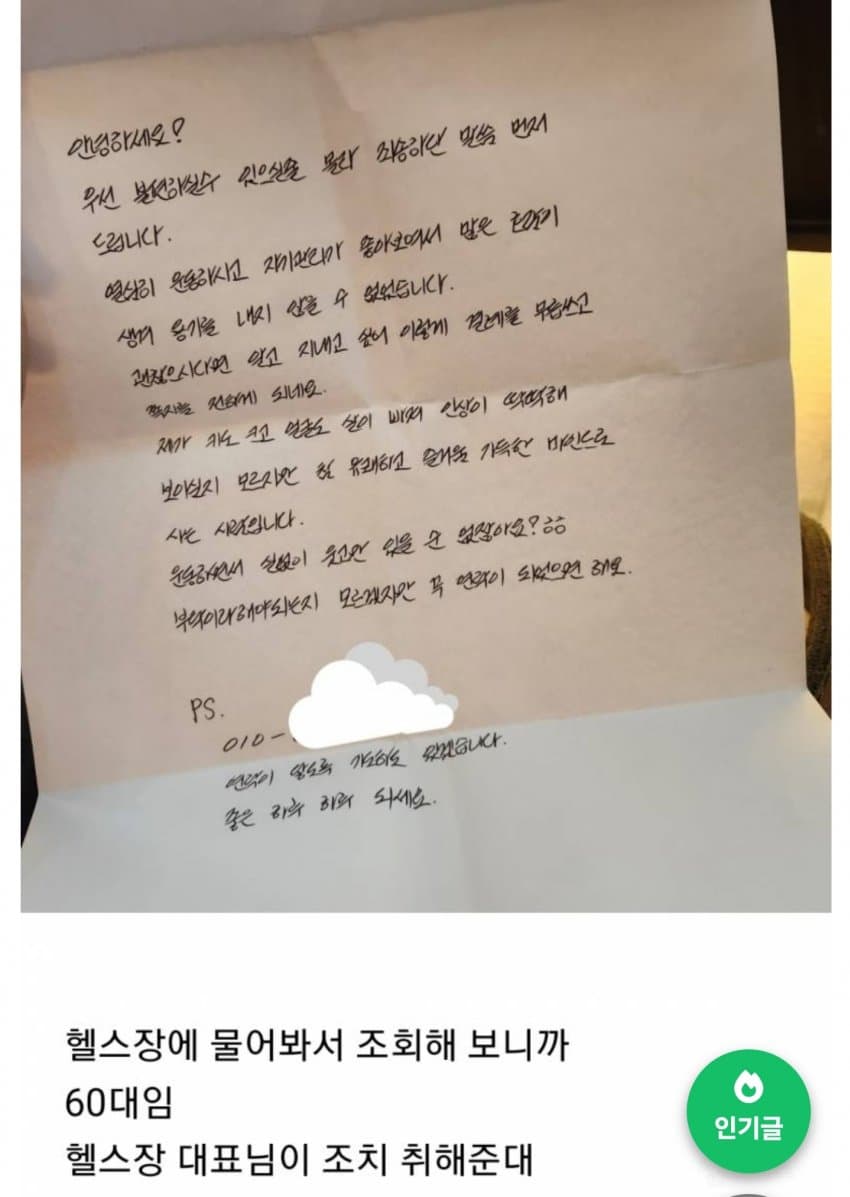 안녕하세요?
우선 불편하실수 있으실줄 몰라 죄송하단 말씀 먼저
드립니다.
열심히 운동하시고 자기관리가 좋아보여서 많은 호감이
생겨 용기를 내지 않을 수 없었습니다.
괜찮으시다면 알고 지내고 싶어 이렇게 결례를 무릅쓰고
쪽지를 전하게 되네요.
제가 키도 크고 얼굴도 살이 빠져 인상이 딱딱해
보이실지 모르지만 참 유쾌하고 즐거움 가득한 마인드로
사는 사람입니다.
운동하면서 실없이 웃고만 있을 순 없잖아요?ㅎㅎ
부탁이라해야되는지 모르겠지만 꼭 연락이 되었으면 해요.
PS.
010-
연락이 않도록 기도하도 있겠습니다.
좋은 하루 하루 되세요.
헬스장에 물어봐서 조회해 보니까
60대임
헬스장 대표님이 조치 취해준대
인기글